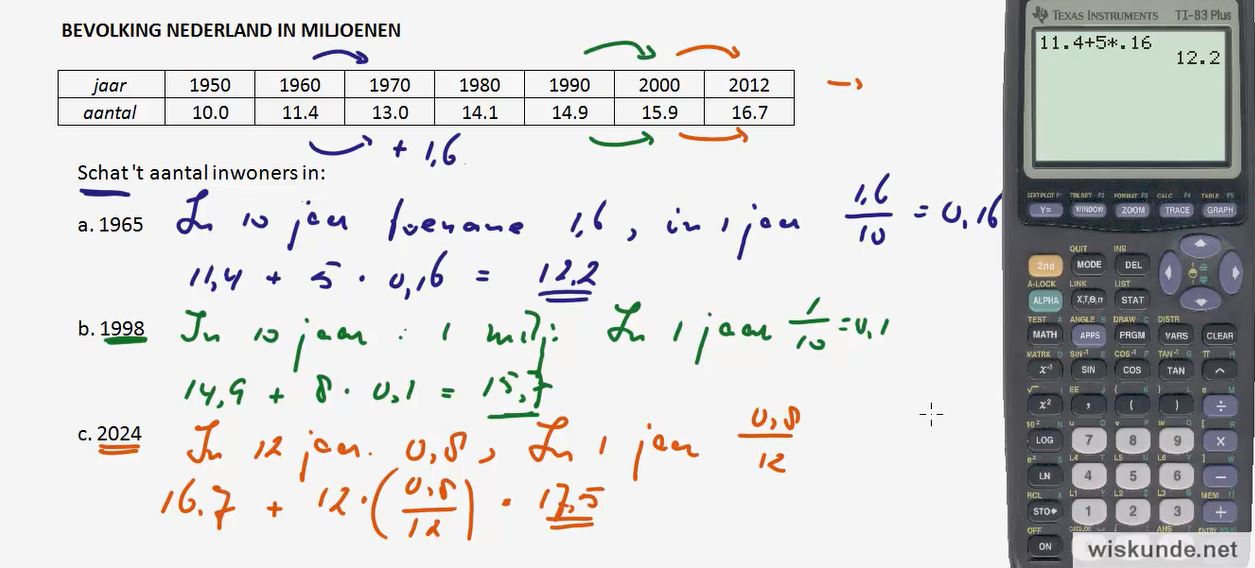 BEVOLKING NEDERLAND IN MILJOENEN
jaar 1950 1960 1970 1980 1990 2000 2012
aantal 10.0 11.4 13.0 14.1 14.9 15.9 16.7
+ 1,6
Schat 't aantal inwoners in:
a. 1965 In 10 jaar toename 1,6, in 1 jaar 1,6/10 = 0,16
11,4 + 5 · 0,16 = 12,2
b. 1998 In 10 jaar : 1 milj. In 1 jaar 1/10 = 0,1
14,9 + 8 · 0,1 = 15,7
c. 2024 In 12 jaar. 0,8, In 1 jaar 0,8/12
16.7 + 12 · (0,8/12) = 17,5
TEXAS INSTRUMENTS TI-83 Plus
11.4+5*.16
12.2
STATPLOT F1 TBLSET F2 FORMAT F3 CALC F4 TABLE F5
Y= WINDOW ZOOM TRACE GRAPH
QUIT INS
2nd MODE DEL
A-LOCK LINK LIST
ALPHA X,T,Θ,n STAT
TEST A ANGLE B DRAW C DISTR
MATH APPS PRGM VARS CLEAR
MATRX D SIN⁻¹ E COS⁻¹ F TAN⁻¹ G π H
x⁻¹ SIN COS TAN ^
√ I EE J { K } L e M
x² , ( ) ÷
10ˣ N u O v P w Q [ R
LOG 7 8 9 ×
eˣ S L4 T L5 U L6 V ] W
LN 4 5 6 −
RCL X L1 Y L2 Z L3 θ MEM "
STO▸ 1 2 3 +
OFF CATALOG i ANS ? ENTRY SOLVE
ON
wiskunde.net